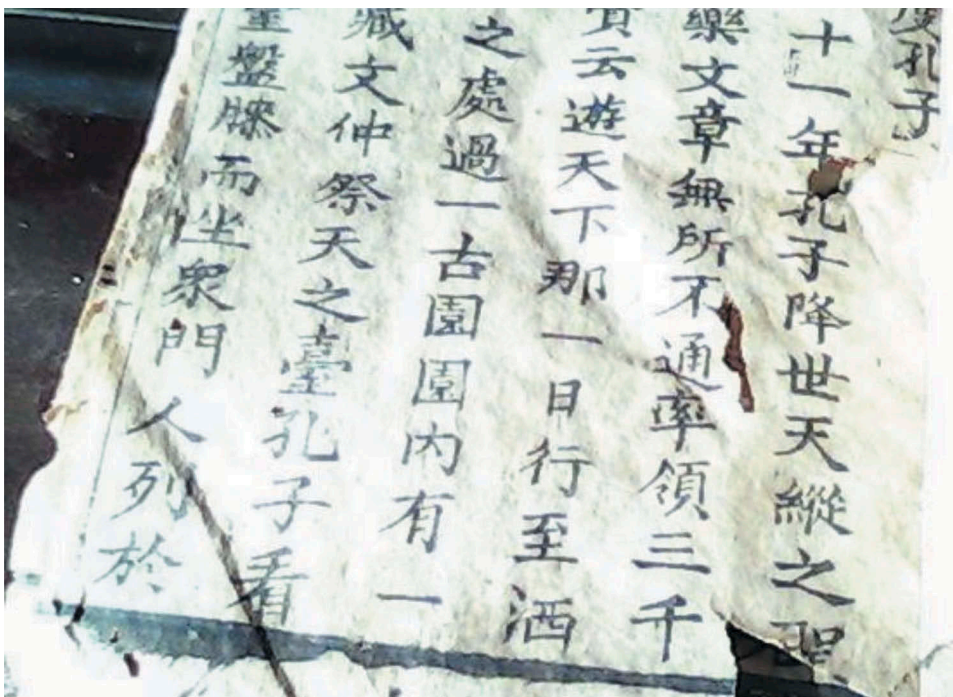 孔子
十一年孔子降世天縱之聖
樂文章無所不通率領三千
云遊天下那一日行至洒
之處過一古園園內有一
臧文仲祭天之臺孔子看
盤膝而坐衆門人列於